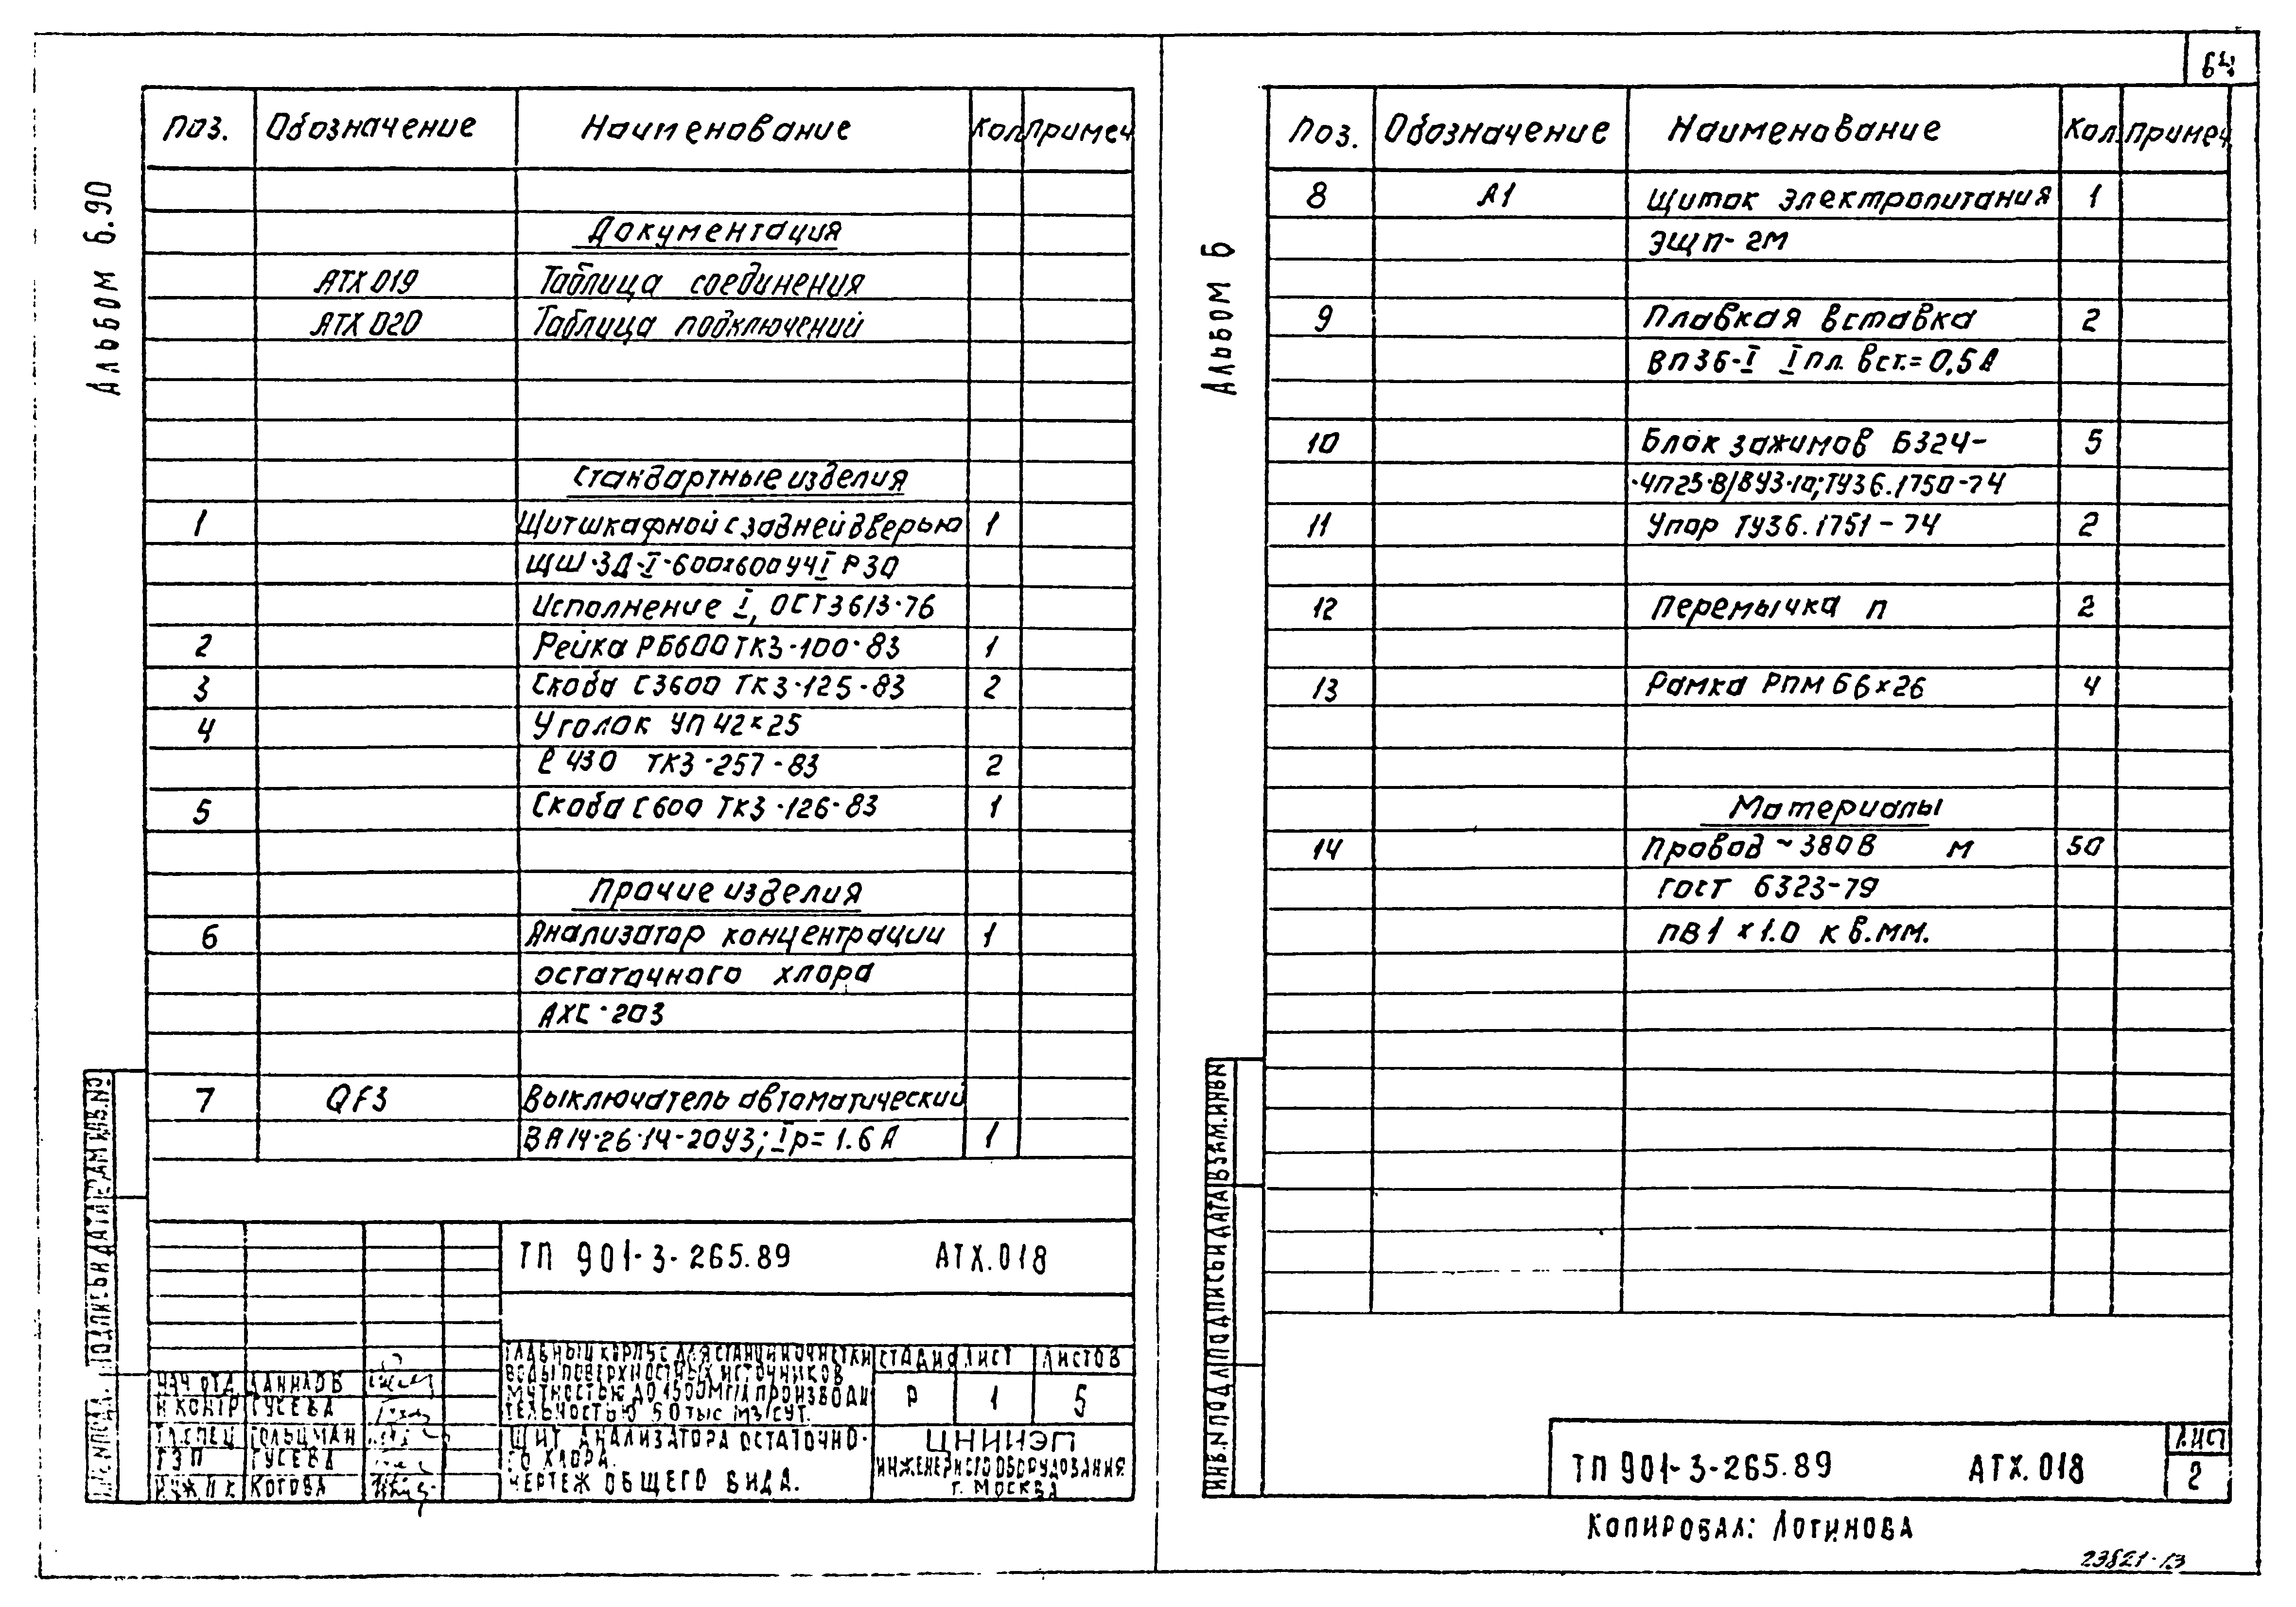 64
Альбом 6.90
Поз. Обозначение Наименование Кол. Примеч
Документация
АТХ 019 Таблица соединения
АТХ 020 Таблица подключений
Стандартные изделия
1 Щит шкафной с задней дверью 1
ЩШ-ЗД-I-600х600 У4 I Р30
Исполнение I, ОСТ3613-76
2 Рейка РБ600 ТК3-100-83 1
3 Скоба С3600 ТК3-125-83 2
4 Уголок УП 42х25
ℓ 430 ТК3-257-83 2
5 Скоба С600 ТК3-126-83 1
Прочие изделия
6 Анализатор концентрации 1
остаточного хлора
АХС-203
7 QF3 Выключатель автоматический
ВА14-26-14-20У3; Iр=1.6А 1
ТП 901-3-265.89 АТХ.018
Главный корпус для станции очистки
воды поверхностных источников
мутностью до 1500мг/л производи
тельностью 50 тыс м3/сут.
Стадия Лист Листов
Р 1 5
Щит анализатора остаточно-
го хлора.
Чертеж общего вида.
ЦНИИЭП
инженерного оборудования
г. Москва
Нач отд Данилов
Н контр Гусева
Гл спец Гольцман
ГЭП Гусева
Инж II к Когова
Альбом 6
Поз. Обозначение Наименование Кол. Примеч
8 А1 Щиток электропитания 1
ЭЩП-2М
9 Плавкая вставка 2
ВП3Б-I I пл. вст.=0,5А
10 Блок зажимов Б324-
5
-4П25-В/ВУ3-10; ТУ36.1750-74
11 Упор ТУ36.1751-74 2
12 Перемычка П 2
13 Рамка РПМ 66×26 4
Материалы
14 Провод ~380В м 50
ГОСТ 6323-79
ПВ1 х 1.0 кв.мм.
Инв.№ подл Подпись и дата Взам.инв№
ТП 901-3-265.89 АТХ.018
Лист
2
Копировал: Логинова
23821-13